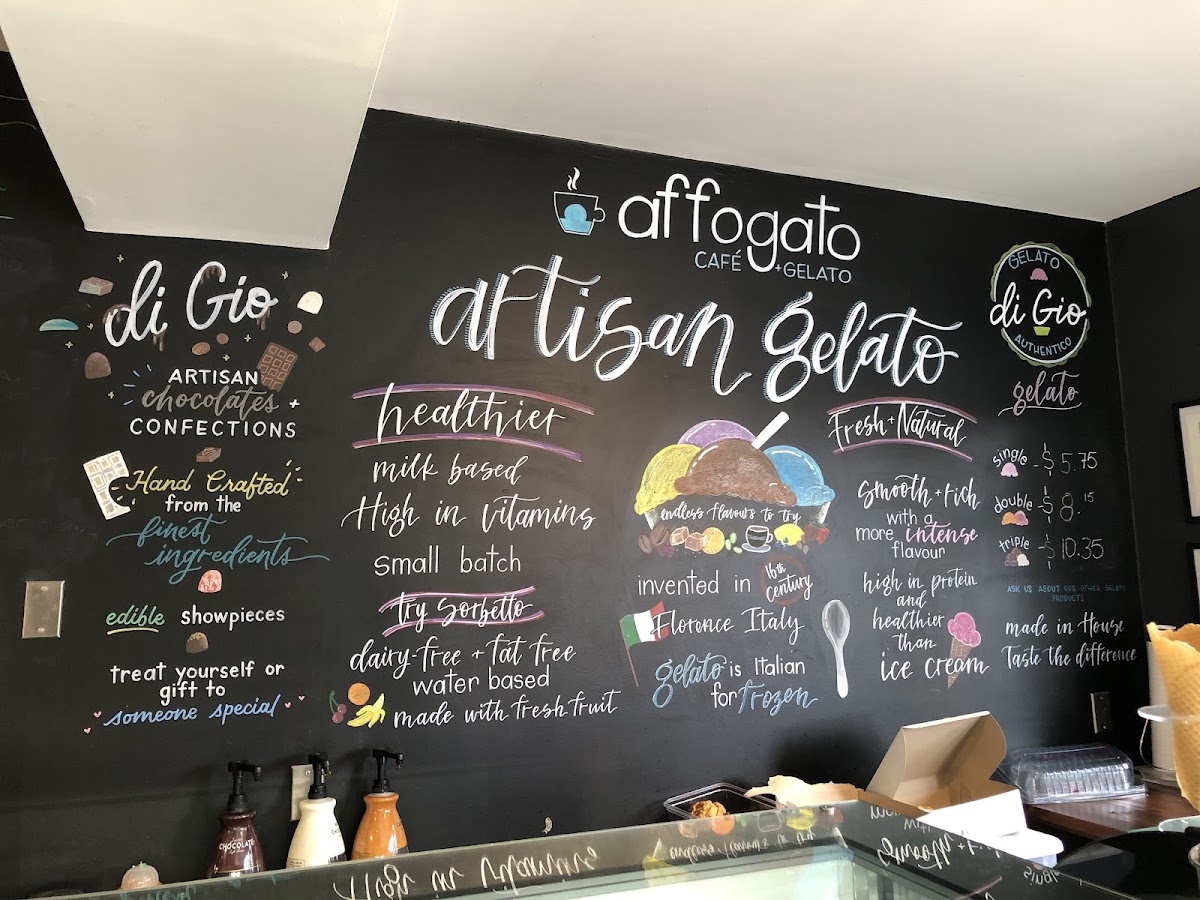 affogato
CAFÉ + GELATO
artisan gelato
di Gio
ARTISAN
chocolates +
CONFECTIONS
Hand Crafted
from the
finest
ingredients
edible showpieces
treat yourself or
gift to
someone special
healthier
milk based
High in vitamins
small batch
try sorbetto
dairy-free + fat free
water based
made with fresh fruit
endless flavours to try
invented in 16th Century
Florence Italy
gelato is Italian
for frozen
Fresh + Natural
smooth + rich
with a
more intense
flavour
high in protein
and
healthier
than
ice cream
GELATO
di Gio
AUTHENTICO
gelato
single - $5.75
double - $8.15
triple - $10.35
ASK US ABOUT OUR OTHER GELATO
PRODUCTS
made in House
Taste the difference
CHOCOLATE